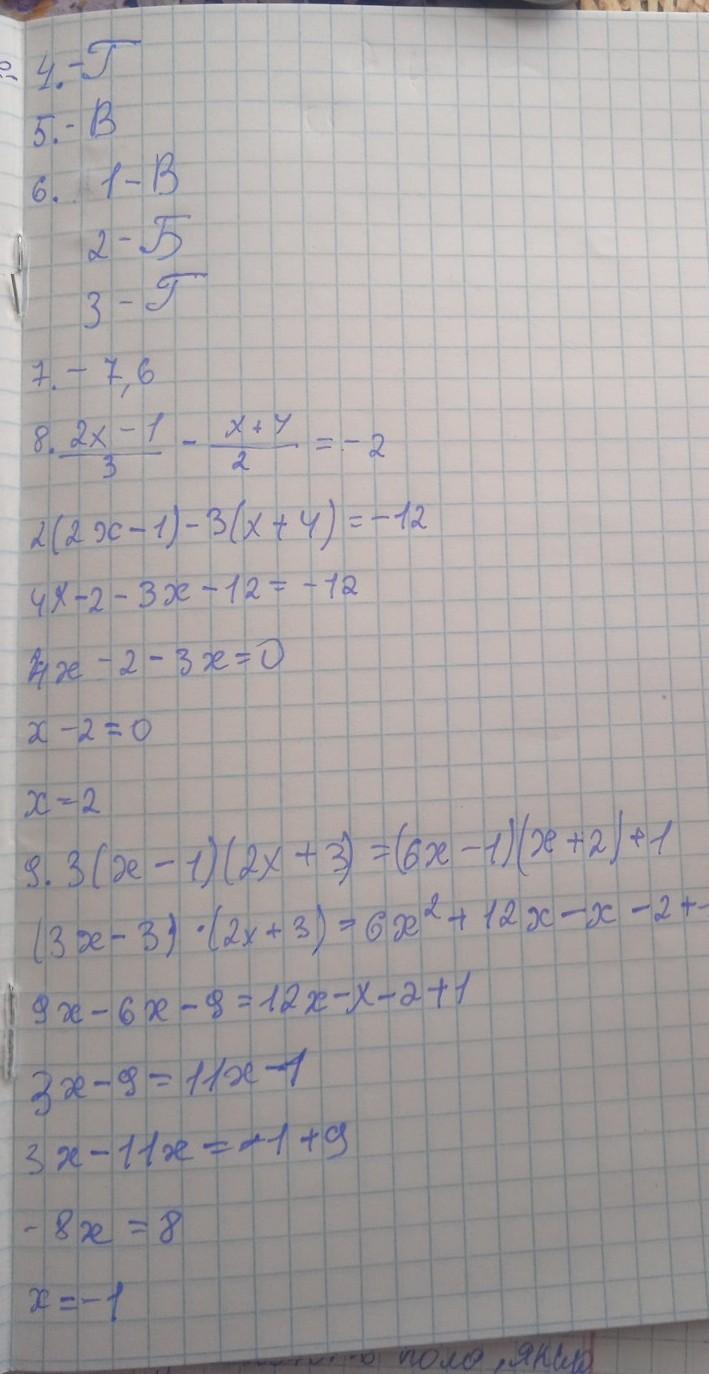 4.-Г
5.- В
6. 1-В
2-Б
3-Г
7.- 7,6
8. (2x-1)/3 - (x+4)/2 = -2
2(2x-1)-3(x+4)=-12
4x-2-3x-12=-12
4x-2-3x=0
x-2=0
x=2
9. 3(x-1)(2x+3)=(6x-1)(x+2)+1
(3x-3)·(2x+3)=6x²+12x-x-2+
9x-6x-9=12x-x-2+1
3x-9=11x-1
3x-11x=-1+9
-8x=8
x=-1
поло, якщо